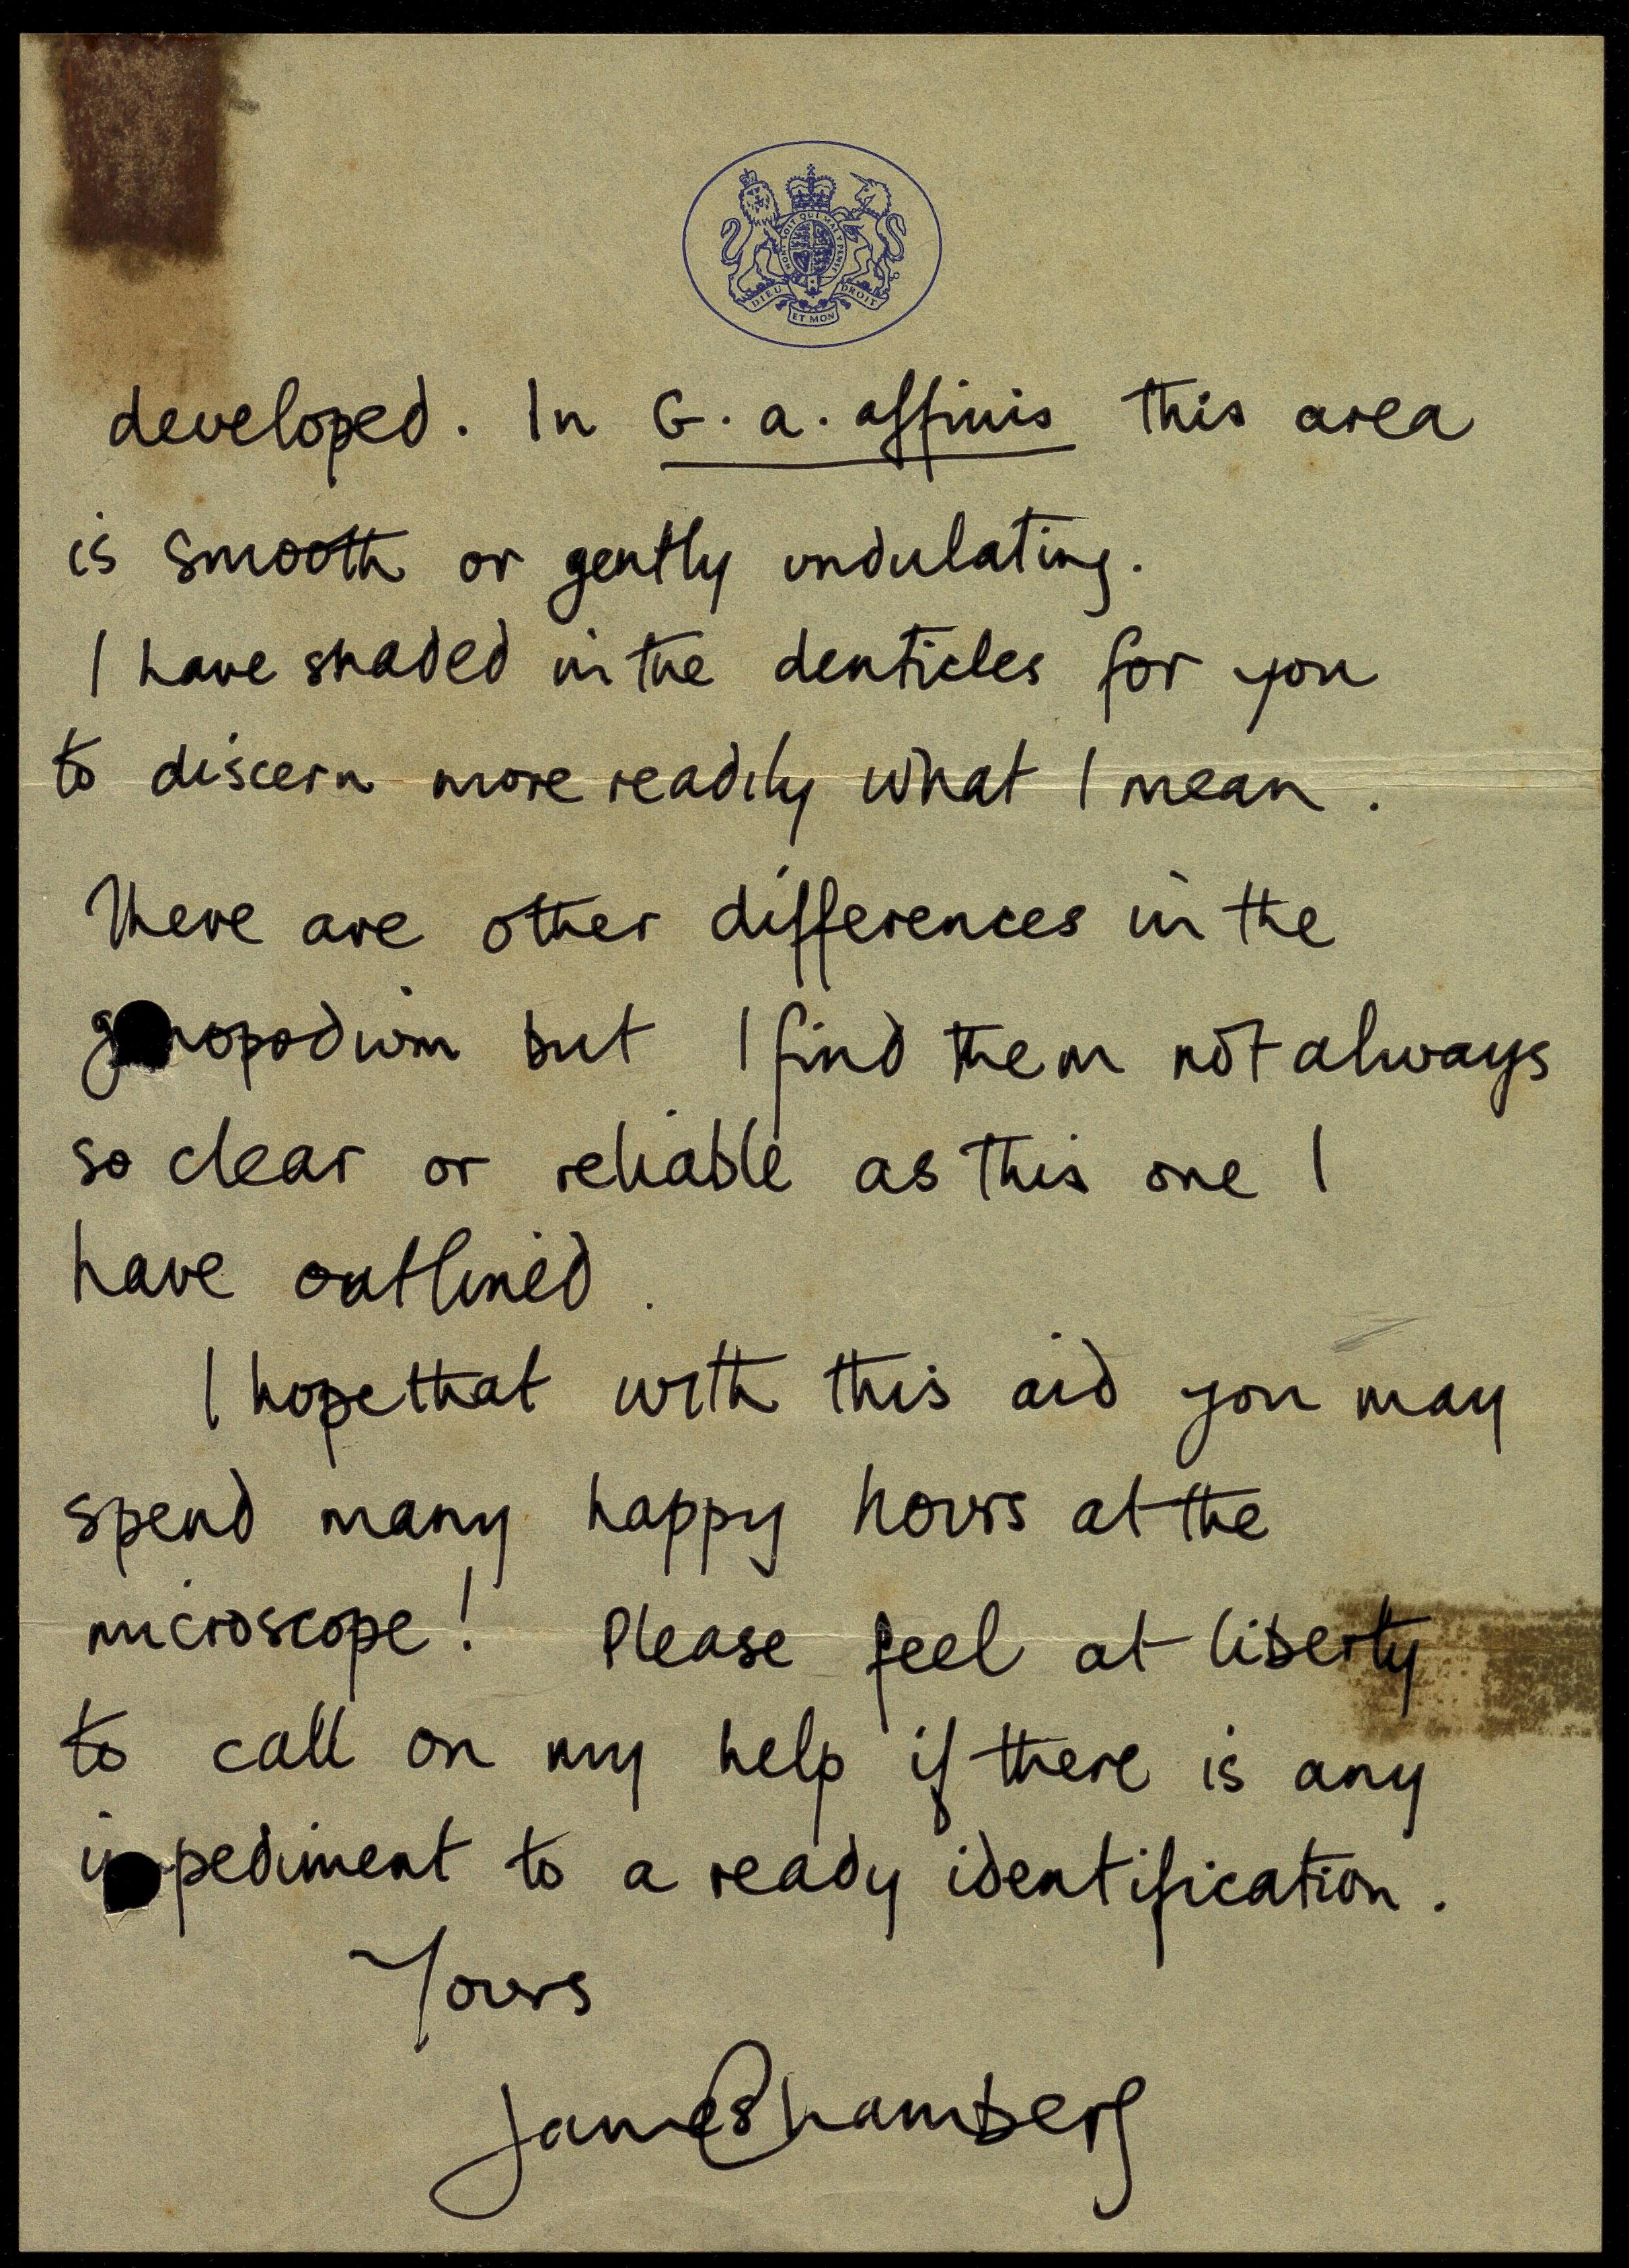 HONI SOIT QUI MAL Y PENSE
DIEU ET MON DROIT
developed. In G. a. affinis this area
is smooth or gently undulating.
I have shaded in the denticles for you
to discern more readily what I mean.
There are other differences in the
gonopodium but I find them not always
so clear or reliable as this one I
have outlined.
I hope that with this aid you may
spend many happy hours at the
microscope! Please feel at liberty
to call on my help if there is any
impediment to a ready identification.
Yours
James Chambers